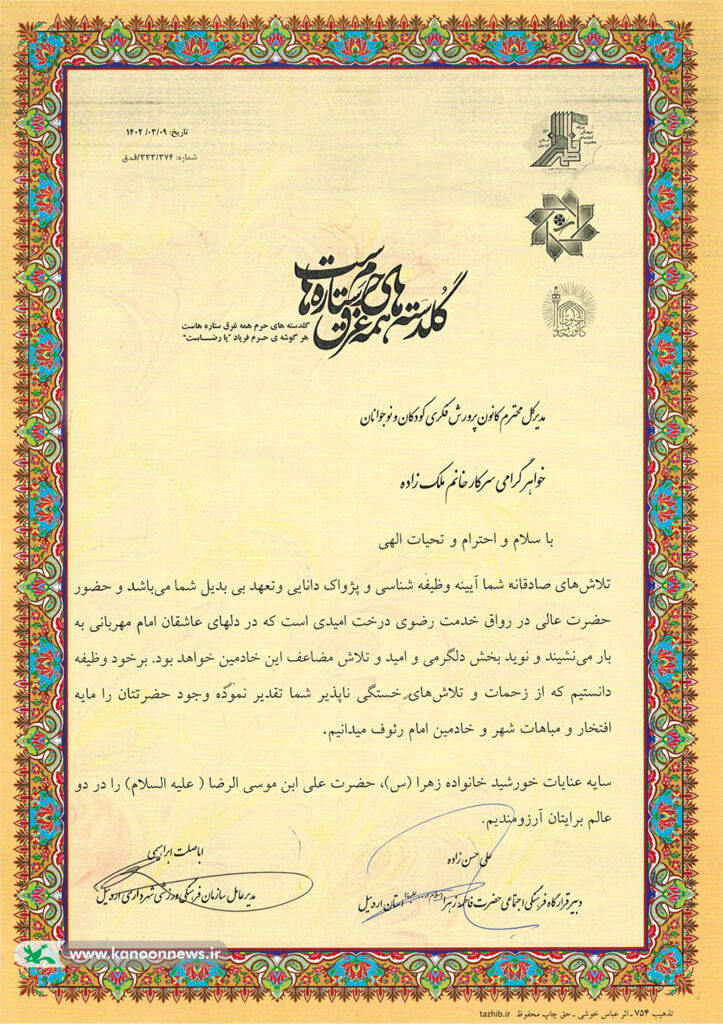 تاریخ: ۱۴۰۲/۰۳/۰۹
شماره: ۲۲۳/۳۷۴/ف.ق
گلدسته های حرم همه غرق ستاره هاست
گلدسته های حرم همه غرق ستاره هاست
هر گوشه ی حرم فریاد "یا رضاست"
مدیرکل محترم کانون پرورش فکری کودکان و نوجوانان
خواهر گرامی سرکار خانم ملک زاده
با سلام و احترام و تحیات الهی
تلاش‌های صادقانه شما آیینه وظیفه شناسی و پژواک دانایی وتعهد بی بدیل شما می‌باشد و حضور
حضرت عالی در رواق خدمت رضوی درخت امیدی است که در دلهای عاشقان امام مهربانی به
بار می‌نشیند و نوید بخش دلگرمی و امید و تلاش مضاعف این خادمین خواهد بود. برخود وظیفه
دانستیم که از زحمات و تلاش‌های خستگی ناپذیر شما تقدیر نموده وجود حضرتتان را مایه
افتخار و مباهات شهر و خادمین امام رئوف میدانیم.
سایه عنایات خورشید خانواده زهرا (س)، حضرت علی ابن موسی الرضا ( علیه السلام) را در دو
عالم برایتان آرزومندیم.
علی حسن زاده
دبیر قرارگاه فرهنگی اجتماعی حضرت فاطمه زهرا استان اردبیل
اباصلت ابراهیمی
مدیرعامل سازمان فرهنگی ورزشی شهرداری اردبیل
www.kanoonnews.ir
تذهیب ۷۵۴ - اثر عباس خوشی - حق چاپ محفوظ tazhib.ir